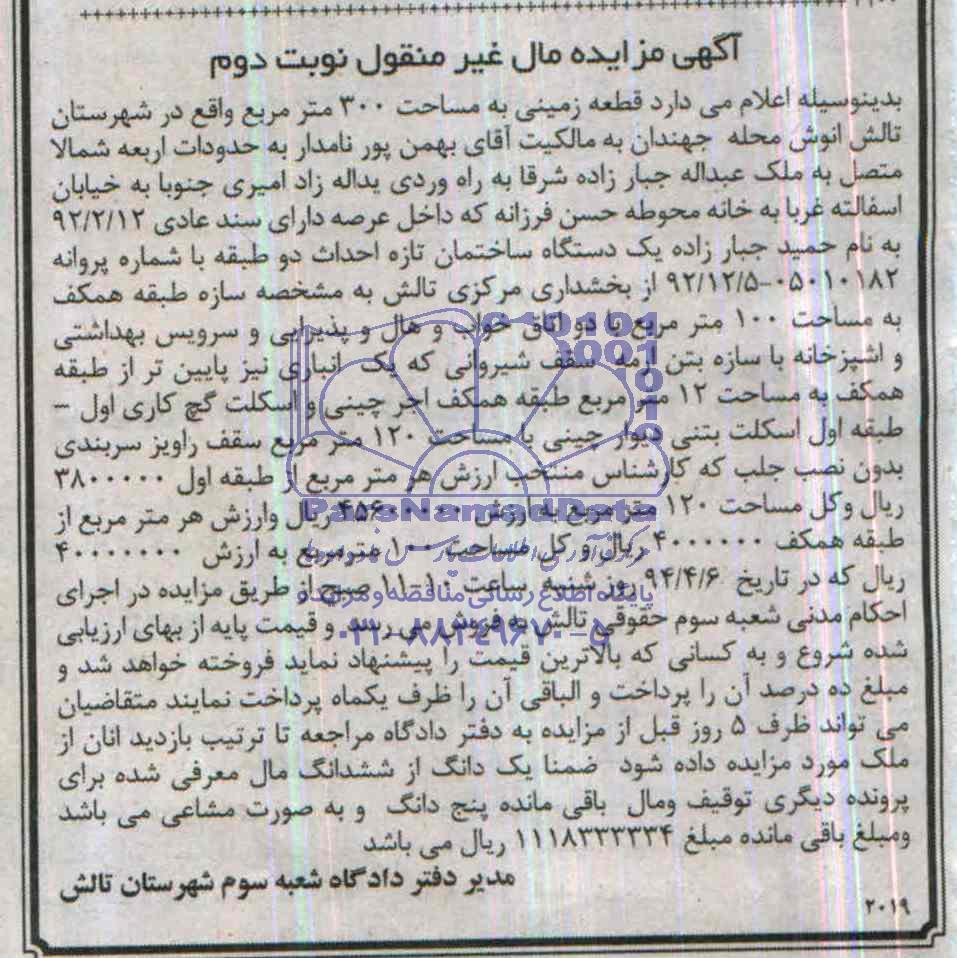 آگهی مزایده مال غیر منقول نوبت دوم
بدینوسیله اعلام می دارد قطعه زمینی به مساحت ۳۰۰ متر مربع واقع در شهرستان
تالش انوش محله جهندان به مالکیت آقای بهمن پور نامدار به حدودات اربعه شمالا
متصل به ملک عبداله جبار زاده شرقا به راه وردی یداله زاد امیری جنوبا به خیابان
اسفالته غربا به خانه محوطه حسن فرزانه که داخل عرصه دارای سند عادی ۹۲/۲/۱۲
به نام حمید جبار زاده یک دستگاه ساختمان تازه احداث دو طبقه با شماره پروانه
۰۵۰۱۰۱۸۲-۹۲/۱۲/۵ از بخشداری مرکزی تالش به مشخصه سازه طبقه همکف
به مساحت ۱۰۰ متر مربع با دو اتاق خواب و هال و پذیرایی و سرویس بهداشتی
و اشپزخانه با سازه بتن ارمه سقف شیروانی که یک انباری نیز پایین تر از طبقه
همکف به مساحت ۱۲ متر مربع طبقه همکف اجر چینی و اسکلت گچ کاری اول –
طبقه اول اسکلت بتنی دیوار چینی با مساحت ۱۲۰ متر مربع سقف راویز سربندی
بدون نصب جلب که کارشناس منتخب ارزش هر متر مربع از طبقه اول ۳۸۰۰۰۰۰
ریال وکل مساحت ۱۲۰ متر مربع به ارزش ریال وارزش هر متر مربع از
طبقه همکف ۴۰۰۰۰۰۰ ریال و کل مساحت ۱۰۰ مترمربع به ارزش
ریال که در تاریخ ۹۴/۴/۶ روز شنبه ساعت ۱۰-۱۱ صبح از طریق مزایده در اجرای
احکام مدنی شعبه سوم حقوقی تالش به فروش می رسد و قیمت پایه از بهای ارزیابی
شده شروع و به کسانی که بالاترین قیمت را پیشنهاد نماید فروخته خواهد شد و
مبلغ ده درصد آن را پرداخت و الباقی آن را ظرف یکماه پرداخت نمایند متقاضیان
می تواند ظرف ۵ روز قبل از مزایده به دفتر دادگاه مراجعه تا ترتیب بازدید انان از
ملک مورد مزایده داده شود ضمنا یک دانگ از ششدانگ مال معرفی شده برای
پرونده دیگری توقیف ومال باقی مانده پنج دانگ و به صورت مشاعی می باشد
ومبلغ باقی مانده مبلغ ۱۱۱۸۳۳۳۳۳۴ ریال می باشد
مدیر دفتر دادگاه شعبه سوم شهرستان تالش
۲۰۱۹
ParsNamadData
پایگاه اطلاع رسانی مناقصه و مزایده
۰۲۱-۸۸۳۴۹۶۷۰-۵